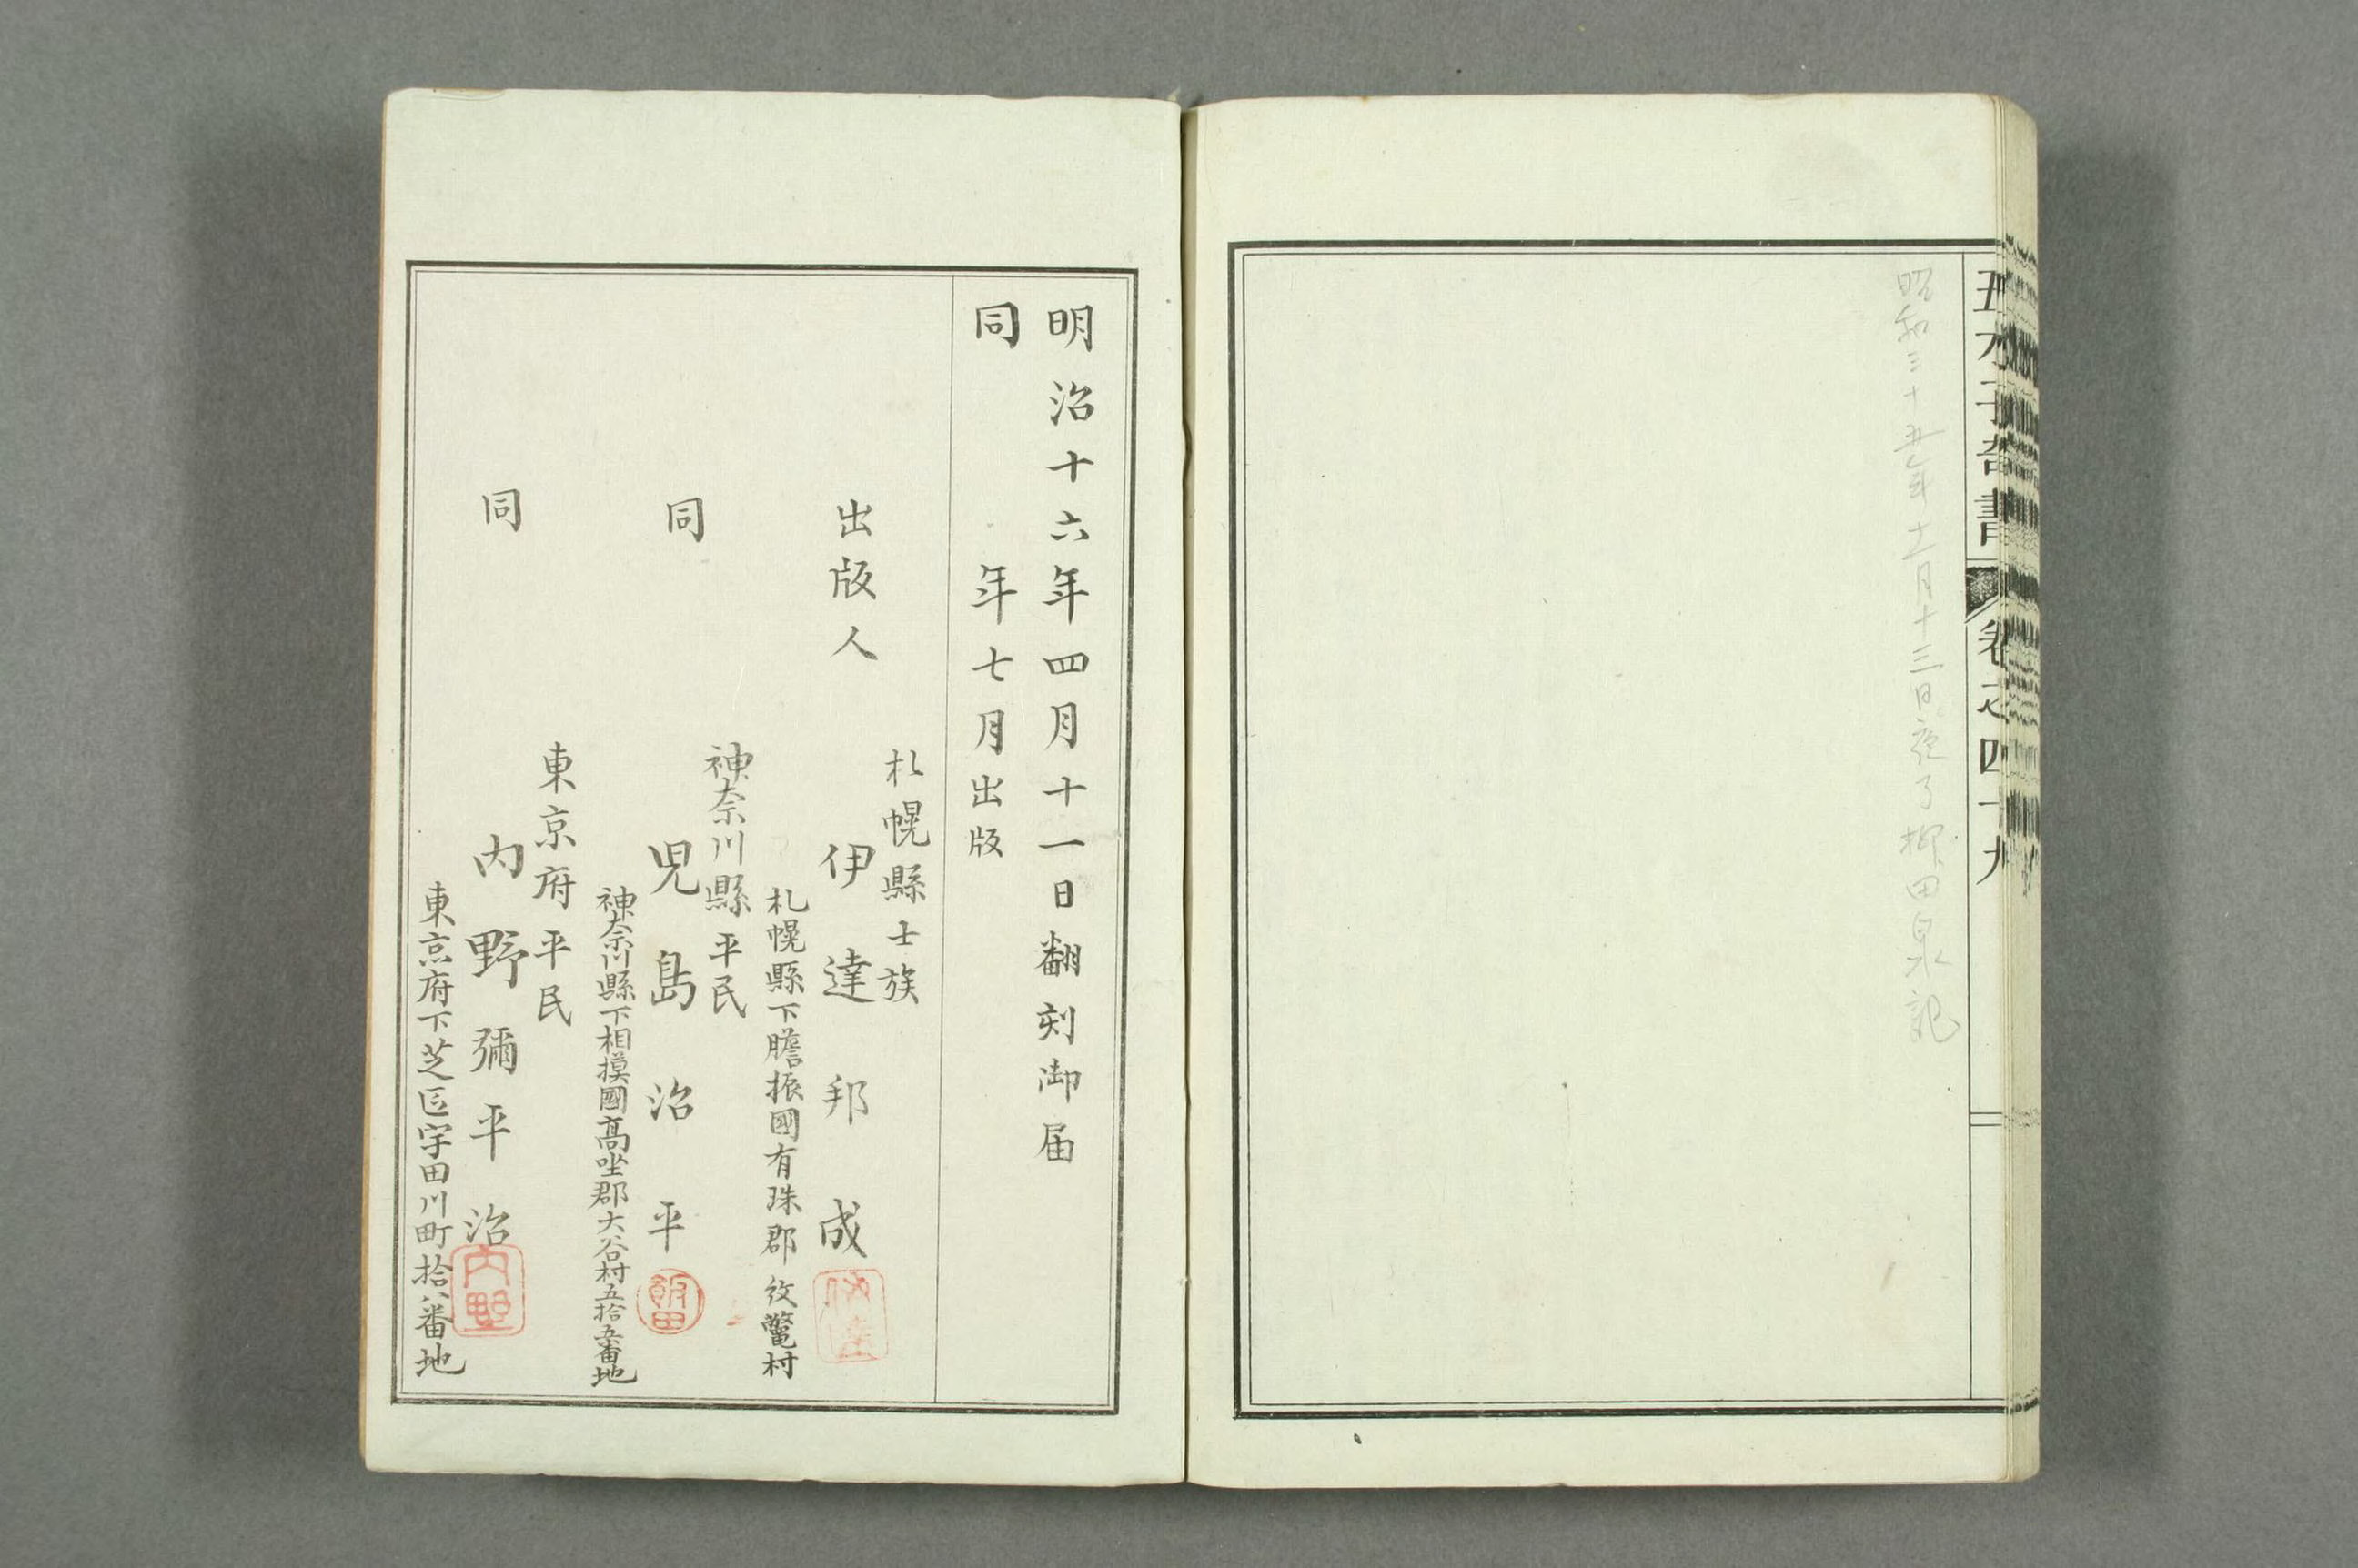 五才子奇書 卷之四十九
昭和三十五年十一月十三日夜了 柳田泉記
明治十六年四月十一日翻刻御届
同年七月出版
札幌縣士族
出版人 伊達邦成
札幌縣下膽振國有珠郡紋鼈村
神奈川縣平民
同 児島治平
神奈川縣下相摸國高坐郡大谷村五拾五番地
東京府平民
同 内野彌平治
東京府下芝區宇田川町拾八番地
伊達
飯田
内野